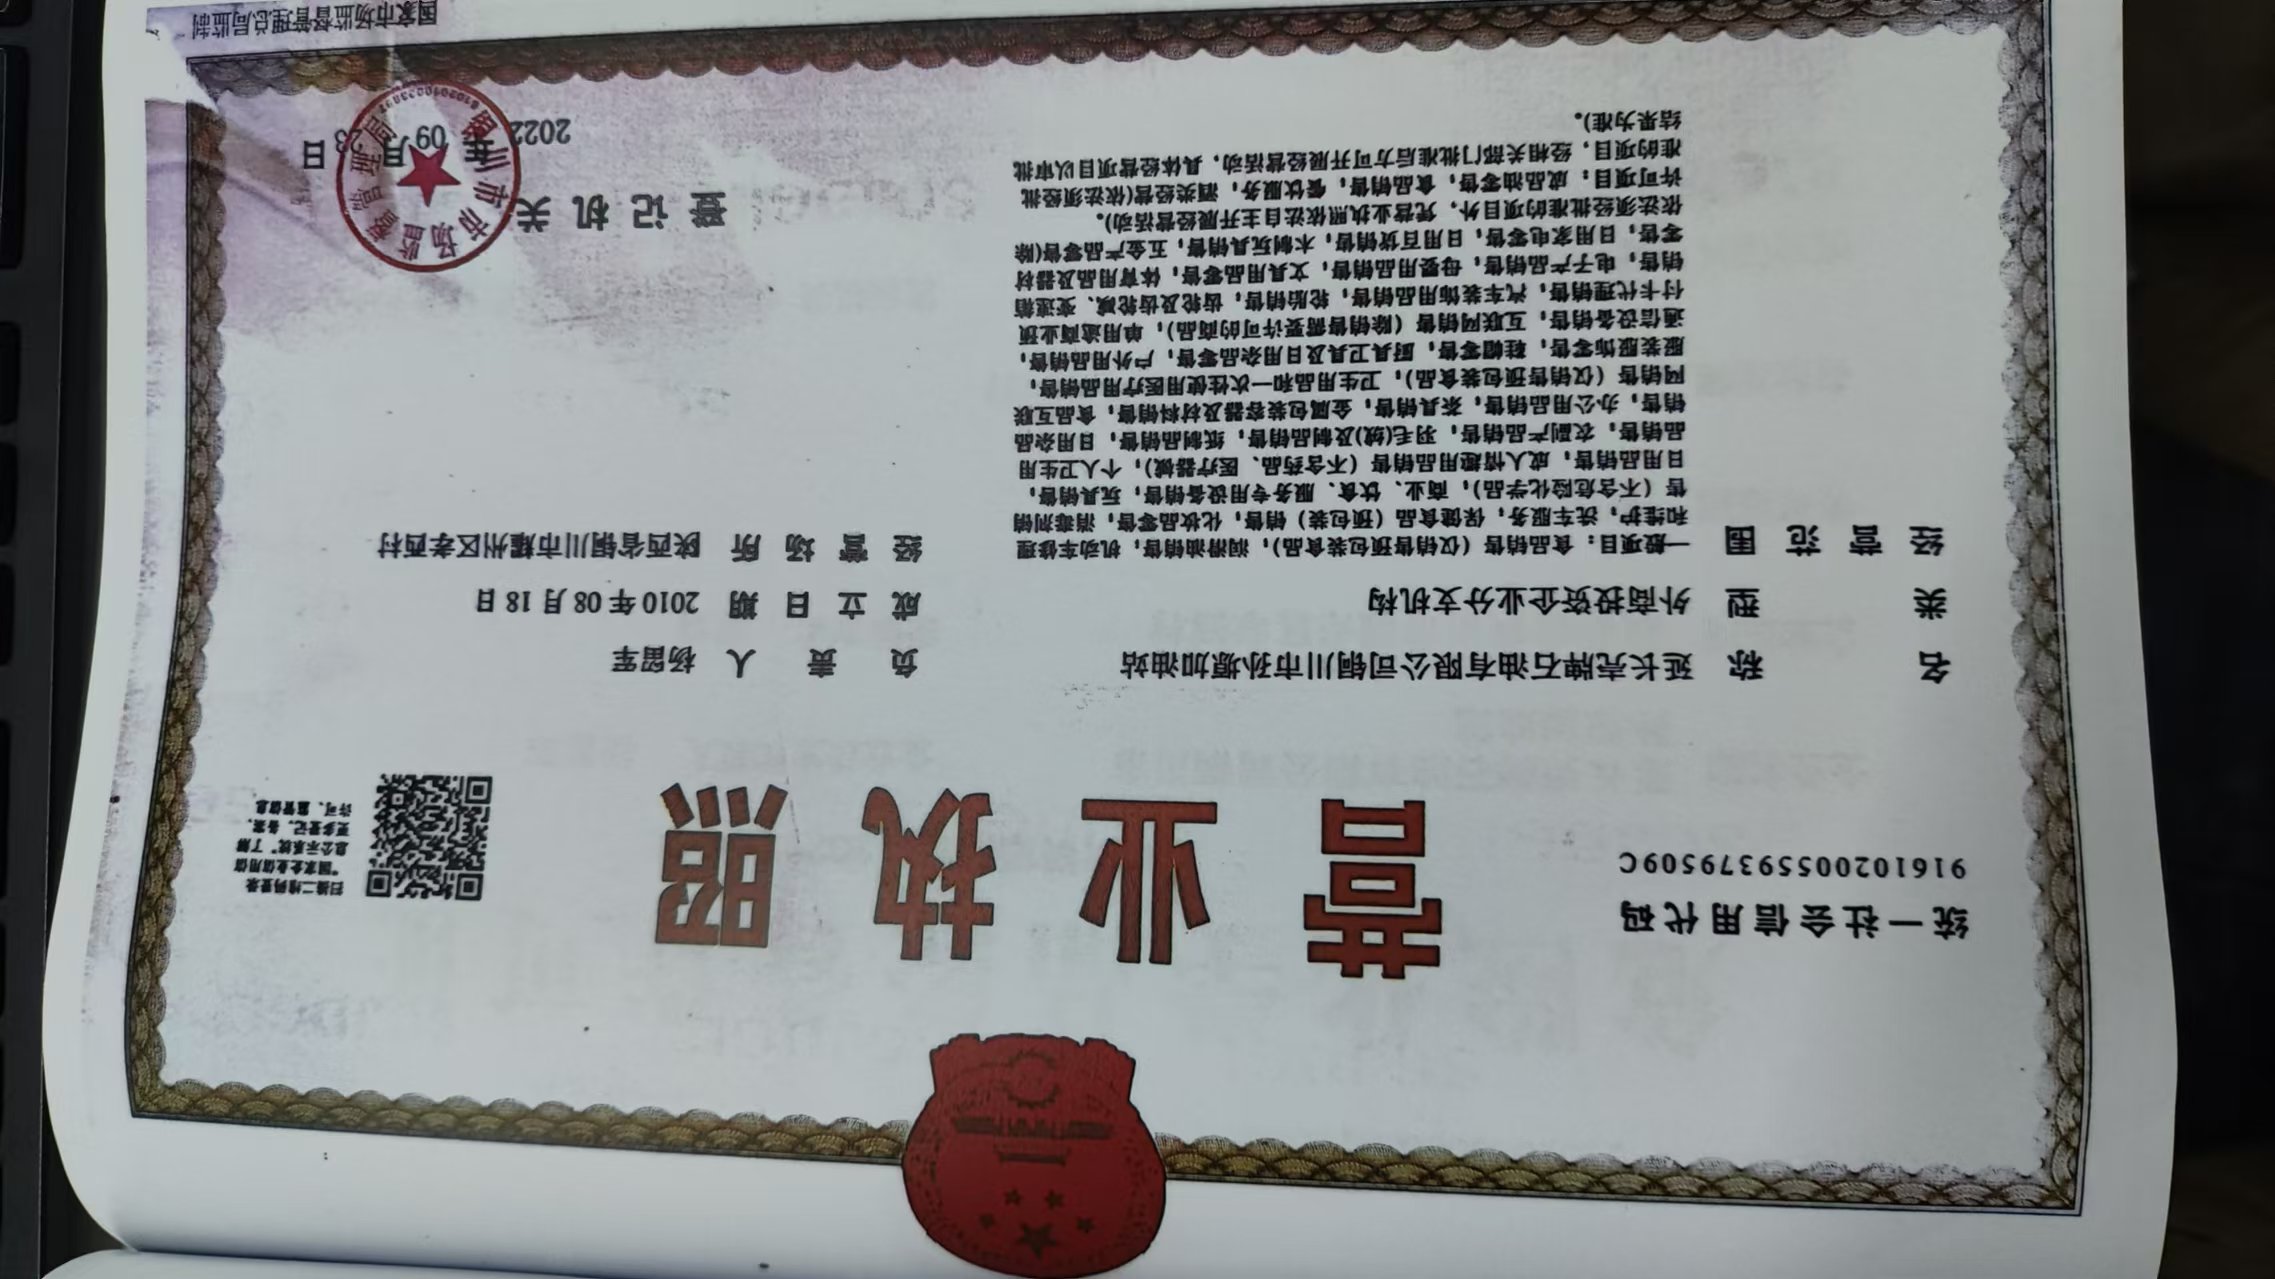 统一社会信用代码
91610200559379509C
营业执照
扫描二维码登录
“国家企业信用信
息公示系统”了解
更多登记、备案、
许可、监管信息。
名称 延长壳牌石油有限公司铜川市孙塬加油站
类型 外商投资企业分支机构
经营范围 一般项目：食品销售（仅销售预包装食品)；润滑油销售；机动车修理
和维护；洗车服务；保健食品（预包装）销售；化妆品零售；消毒剂销
售（不含危险化学品)；商业、饮食、服务专用设备销售；玩具销售；
日用品销售；成人情趣用品销售（不含药品、医疗器械)；个人卫生用
品销售；农副产品销售；羽毛(绒)及制品销售；纸制品销售；日用杂品
销售；办公用品销售；茶具销售；金属包装容器及材料销售；食品互联
网销售（仅销售预包装食品)；卫生用品和一次性使用医疗用品销售；
服装服饰零售；鞋帽零售；厨具卫具及日用杂品零售；户外用品销售；
通信设备销售；互联网销售（除销售需要许可的商品)；单用途商业预
付卡代理销售；汽车装饰用品销售；轮胎销售；齿轮及齿轮减、变速箱
销售；电子产品销售；母婴用品销售；文具用品零售；体育用品及器材
零售；日用家电零售；日用百货销售；木制玩具销售；五金产品零售(除
依法须经批准的项目外，凭营业执照依法自主开展经营活动)。
许可项目：成品油零售；食品销售；餐饮服务；酒类经营(依法须经批
准的项目，经相关部门批准后方可开展经营活动，具体经营项目以审批
结果为准)。
负责人 杨留军
成立日期 2010年08月18日
经营场所 陕西省铜川市耀州区孝西村
登记机关
铜川市市场监督管理局
2022年09月23日
国家市场监督管理总局监制